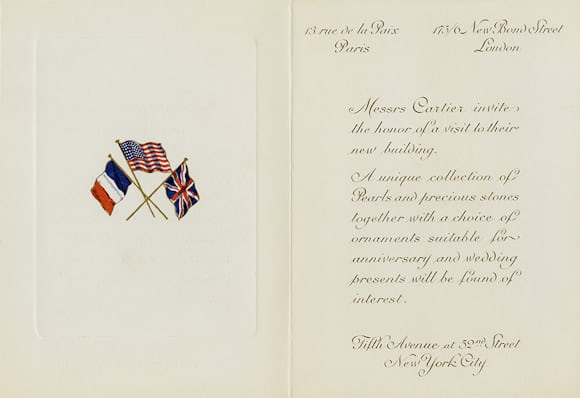 13 rue de la Paix
Paris
175/6 New Bond Street
London
Messrs Cartier invite
the honor of a visit to their
new building.
A unique collection of
Pearls and precious stones
together with a choice of
ornaments suitable for
anniversary and wedding
presents will be found of
interest.
Fifth Avenue at 52nd Street
New York City